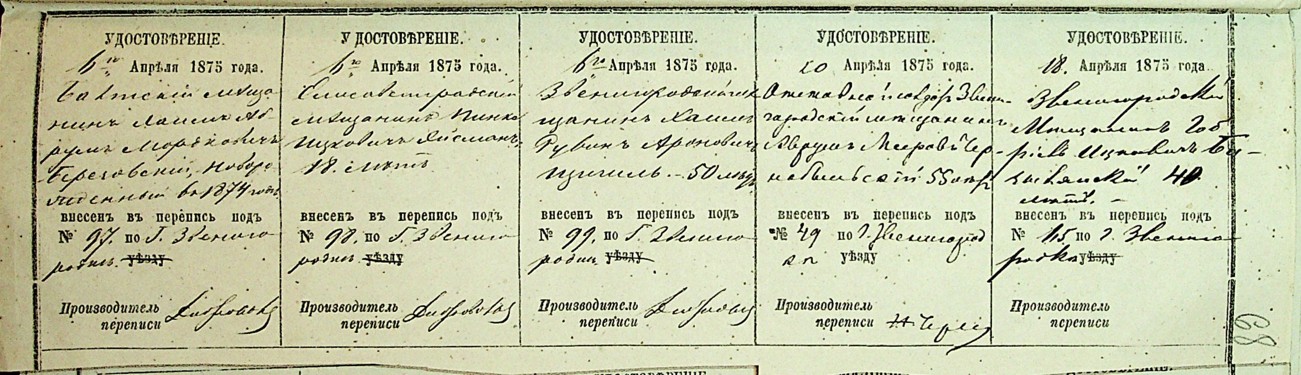 УДОСТОВѢРЕНІЕ.
6го Апрѣля 1875 года.
мѣща-
нинъ Хаимъ Аб-
румъ Морьковичъ
Березовскій, новоро-
жденный въ 1874 году
внесенъ въ перепись подъ
№ 97. по Г. Звениго-
родкѣ. уѣзду
Производитель
переписи
УДОСТОВѢРЕНІЕ.
6го Апрѣля 1875 года.
Елисаветградскій
мѣщанинъ Пинка
Ицковичъ
18. лѣтъ
внесенъ въ перепись подъ
№ 98. по Г. Звениго-
родкѣ. уѣзду
Производитель
переписи
УДОСТОВѢРЕНІЕ.
6го Апрѣля 1875 года.
Звенигородскій мѣ-
щанинъ Хаимъ
Рувинъ Ароновичъ
50 лѣтъ
внесенъ въ перепись подъ
№ 99. по Г. Звениго-
родкѣ уѣзду
Производитель
переписи
УДОСТОВѢРЕНІЕ.
20 Апрѣля 1875 года.
Отставной Звени-
городскій мѣщанинъ
Аврумъ Мееровъ Чер-
нобыльскій 55
внесенъ въ перепись подъ
№ 49 по Г. Звенигород
кѣ уѣзду
Производитель
переписи
УДОСТОВѢРЕНІЕ.
18. Апрѣля 1875 года
Звенигородскій
Мѣщанинъ Гоб-
ріель Ицковичъ
40
лѣтъ.
внесенъ въ перепись подъ
№ 115 по г. Звениго-
родкѣ уѣзду
Производитель
переписи
68
УДОСТОВѢРЕНІЕ.